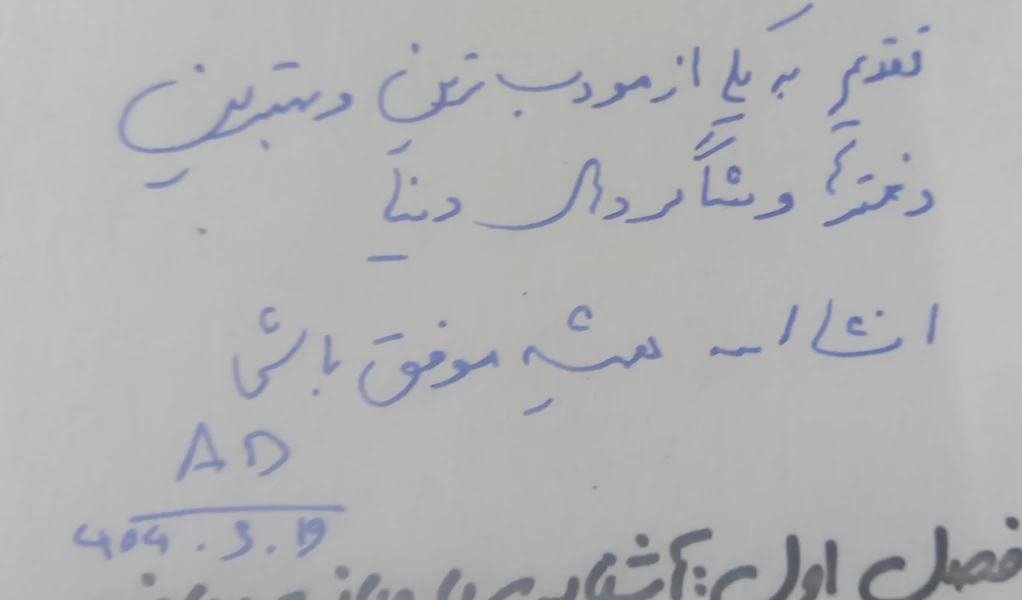 تقدیم به یکی از مودب ترین و بهترین
دخترا و شاگردای دنیا
انشاا... همیشه موفق باشی
AD
404.3.19
فصل اول: آشنایی با